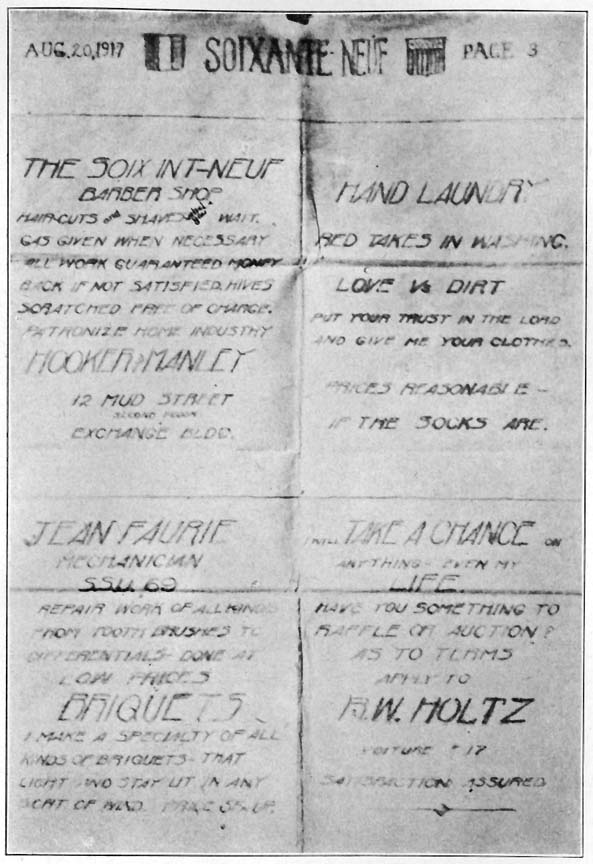 AUG. 20, 1917 SOIXANTE-NEUF PAGE 3
THE SOIXINT-NEUF
BARBER SHOP
HAIR-CUTS AND SHAVES WAIT.
GAS GIVEN WHEN NECESSARY
ALL WORK GUARANTEED MONEY
BACK IF NOT SATISFIED. HIVES
SCRATCHED FREE OF CHARGE.
PATRONIZE HOME INDUSTRY
HOOKER & MANLEY
12 MUD STREET
SECOND FLOOR
EXCHANGE BLDG.
HAND LAUNDRY
RED TAKES IN WASHING.
LOVE VS DIRT
PUT YOUR TRUST IN THE LORD
AND GIVE ME YOUR CLOTHES.
PRICES REASONABLE -
IF THE SOCKS ARE.
JEAN FAURIE
MECHANICIAN
S.S.U. 69
REPAIR WORK OF ALL KINDS
FROM TOOTH BRUSHES TO
DIFFERENTIALS - DONE AT
LOW PRICES
BRIQUETS
I MAKE A SPECIALTY OF ALL
KINDS OF BRIQUETS - THAT
LIGHT AND STAY LIT IN ANY
SORT OF WIND. PRICE 5F. UP.
I WILL TAKE A CHANCE ON
ANYTHING - EVEN MY
LIFE.
HAVE YOU SOMETHING TO
RAFFLE OR AUCTION?
AS TO TERMS
APPLY TO
R.W. HOLTZ
VOITURE #17
SATISFACTION ASSURED